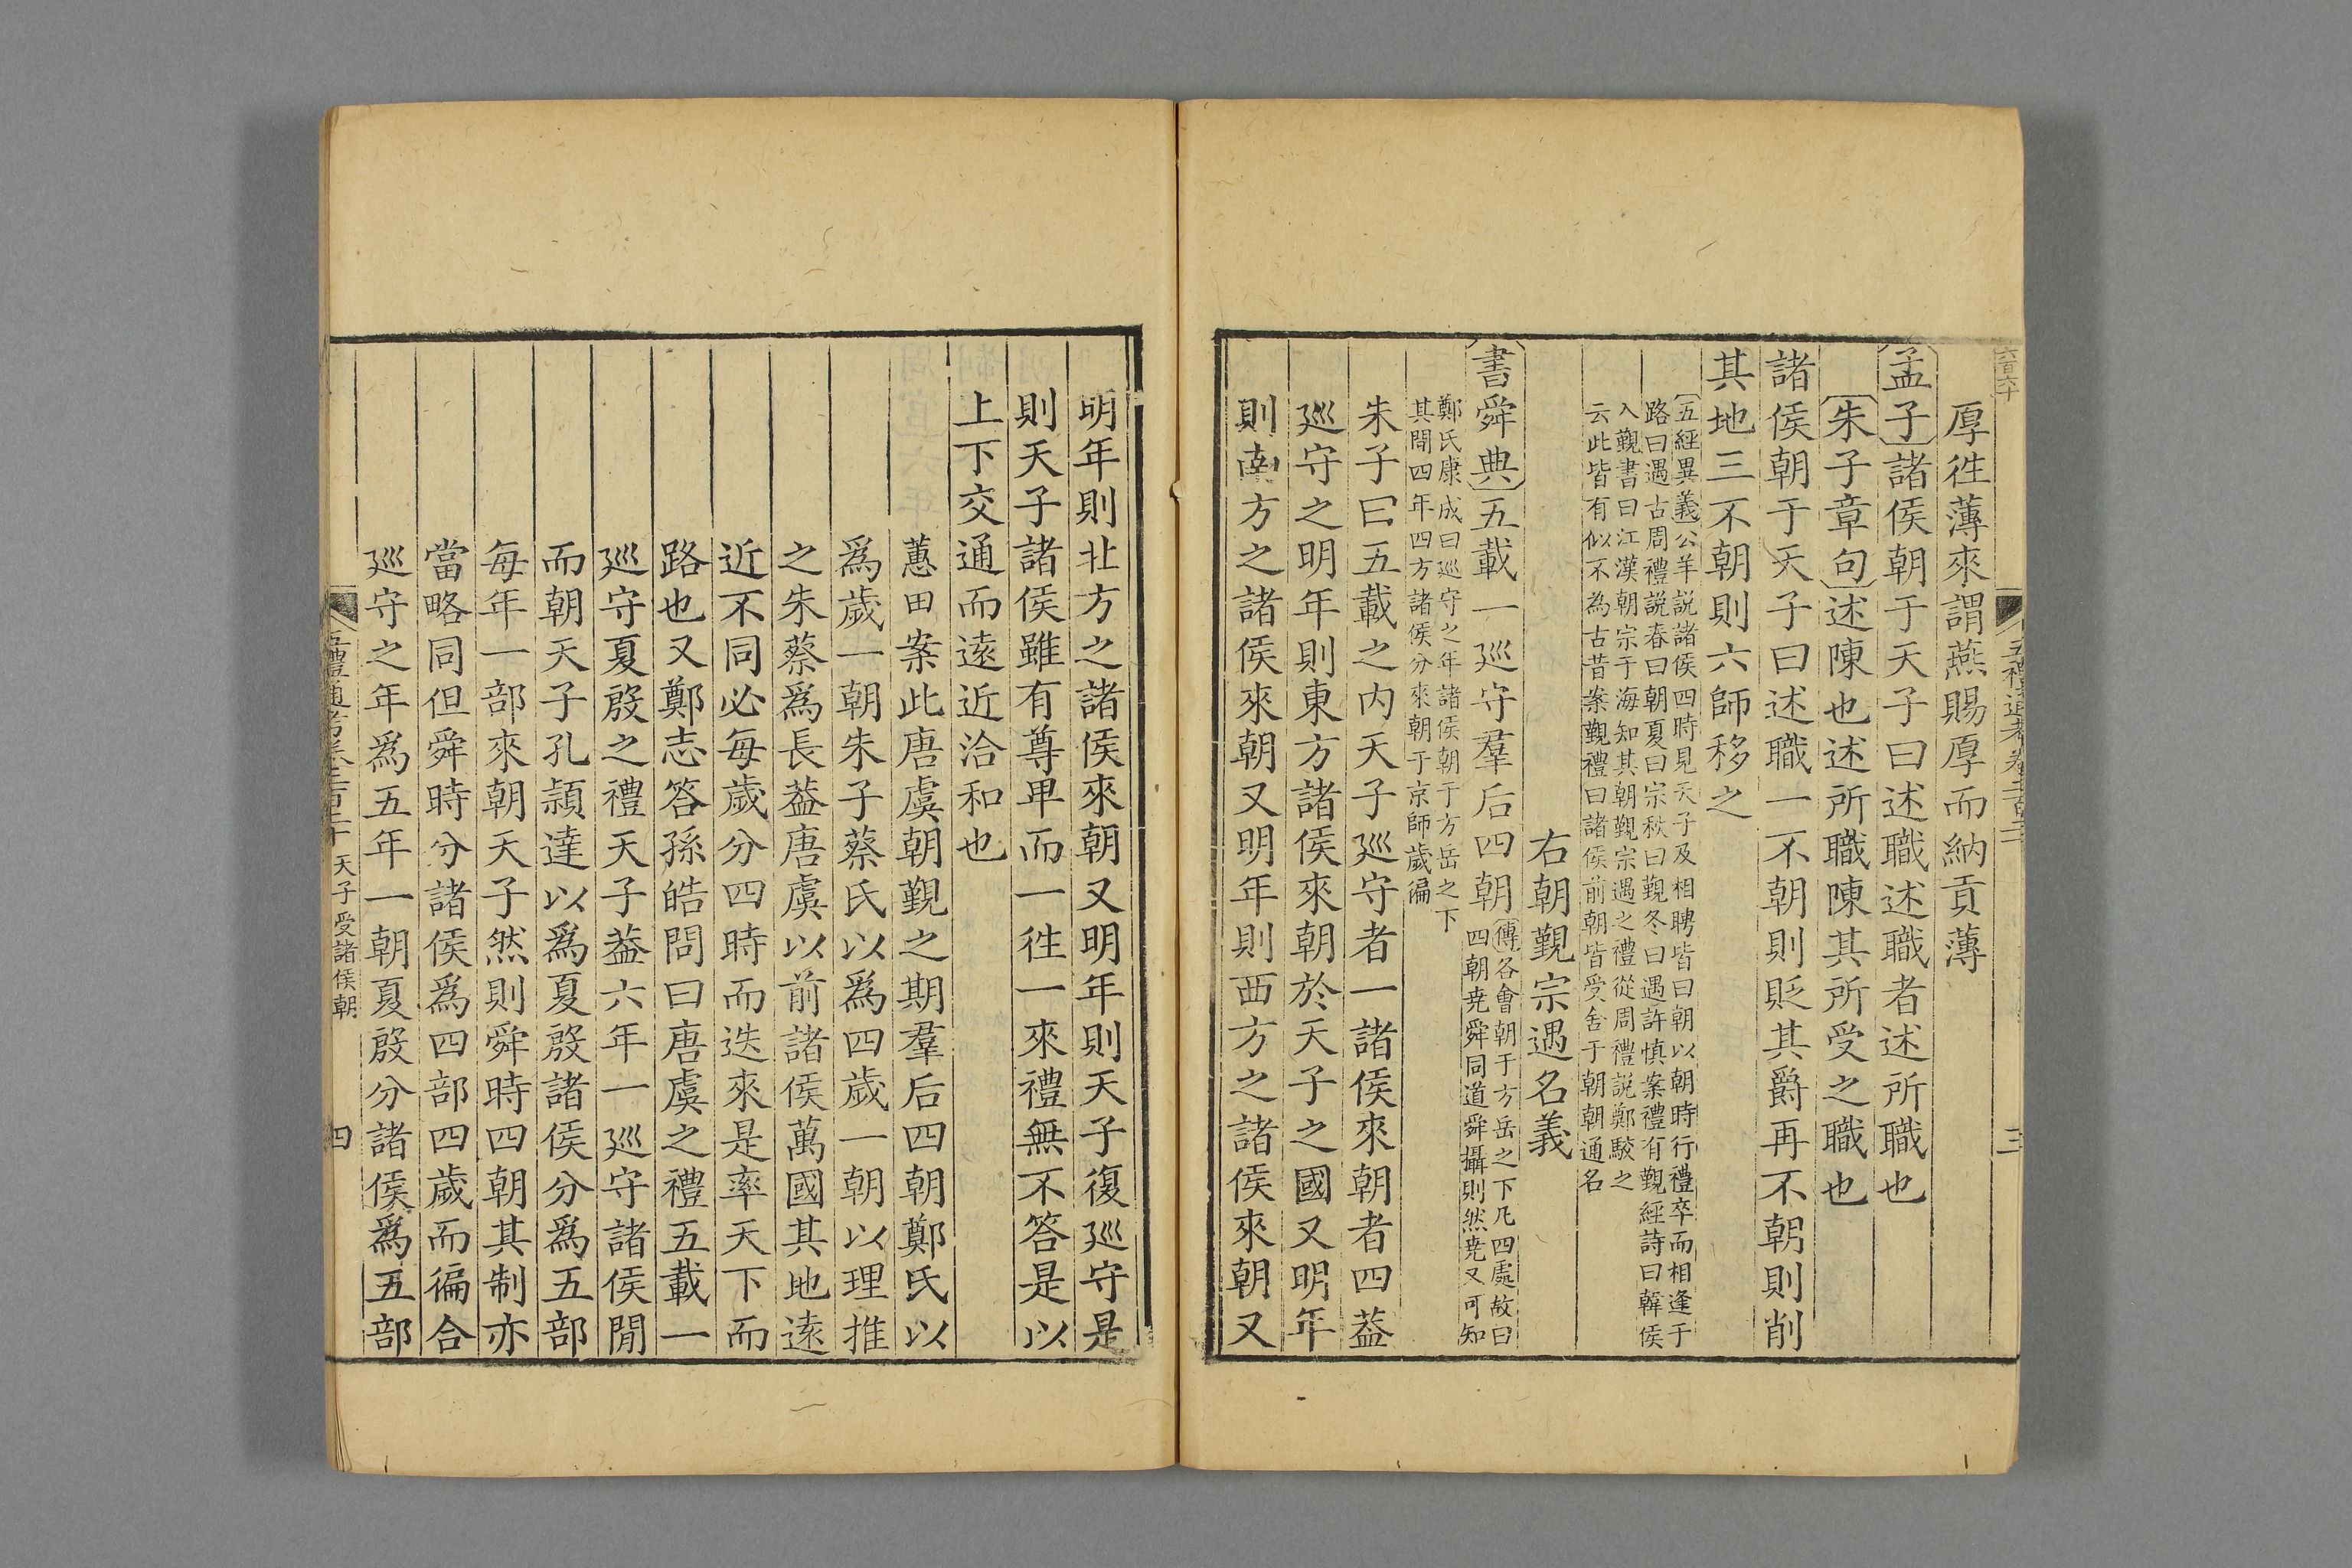 厚徃薄來謂燕賜厚而納貢薄
孟子諸侯朝于天子曰述職述職者述所職也
朱子章句述陳也述所職陳其所受之職也
諸侯朝于天子曰述職一不朝則貶其爵再不朝則削
其地三不朝則六師移之
五經異義公羊説諸侯四時見天子及相聘皆曰朝以朝時行禮卒而相逢于
路曰遇古周禮説春曰朝夏曰宗秋曰覲冬曰遇許慎案禮有覲經詩曰韓侯
入覲書曰江漢朝宗于海知其朝覲宗遇之禮從周禮説鄭駮之
云此皆有似不為古昔案覲禮曰諸侯前朝皆受舍于朝朝通名
右朝覲宗遇名義
書舜典五載一廵守羣后四朝
傳各會朝于方岳之下凡四處故曰
四朝尭舜同道舜攝則然尭又可知
鄭氏康成曰廵守之年諸侯朝于方岳之下
其間四年四方諸侯分來朝于京師歲徧
朱子曰五載之内天子廵守者一諸侯來朝者四葢
廵守之明年則東方諸侯來朝於天子之國又明年
則南方之諸侯來朝又明年則西方之諸侯來朝又
明年則北方之諸侯來朝又明年則天子復廵守是
則天子諸侯雖有尊卑而一徃一來禮無不答是以
上下交通而遠近洽和也
蕙田案此唐虞朝覲之期羣后四朝鄭氏以
爲歲一朝朱子蔡氏以爲四歲一朝以理推
之朱蔡爲長葢唐虞以前諸侯萬國其地遠
近不同必每歲分四時而迭來是率天下而
路也又鄭志答孫皓問曰唐虞之禮五載一
廵守夏殷之禮天子葢六年一廵守諸侯閒
而朝天子孔頴達以爲夏殷諸侯分爲五部
每年一部來朝天子然則舜時四朝其制亦
當略同但舜時分諸侯爲四部四歲而徧合
廵守之年爲五年一朝夏殷分諸侯爲五部
五禮通考卷二百二十 天子受諸侯朝 四